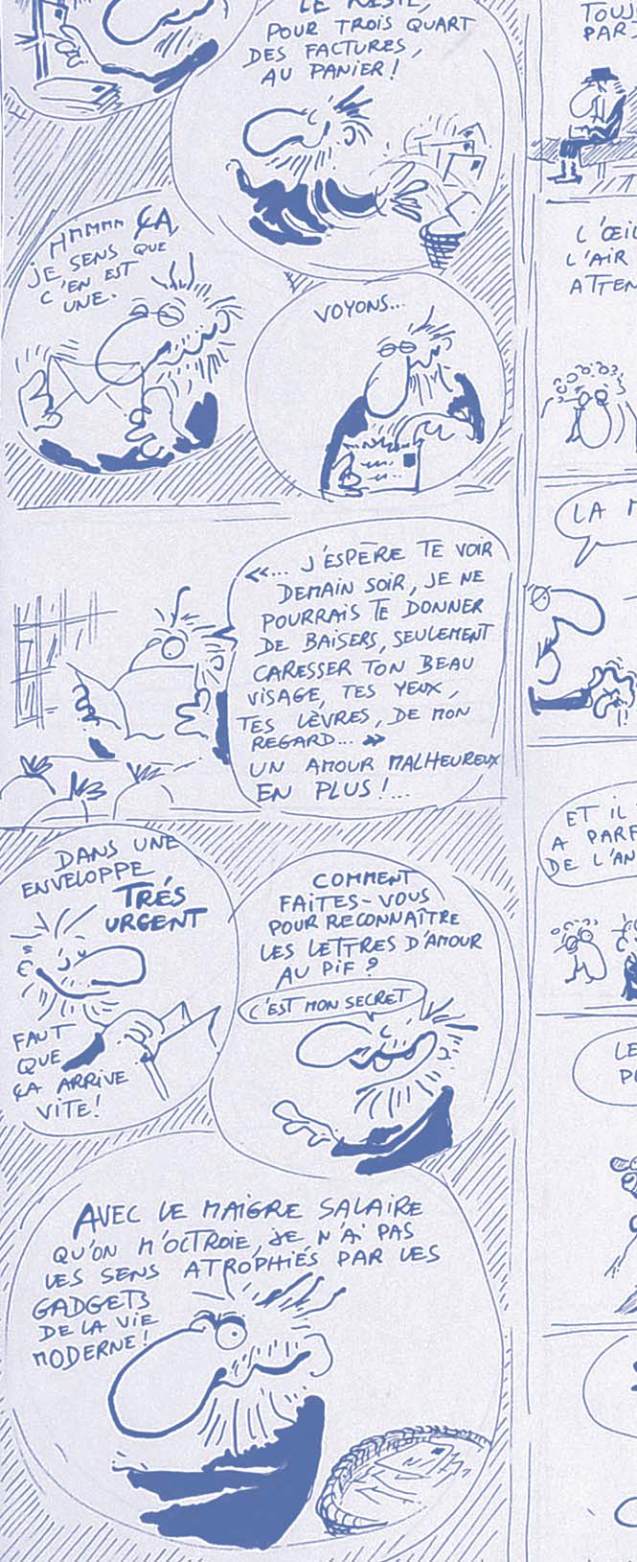 LE RESTE,
POUR TROIS QUART
DES FACTURES,
AU PANIER !
HMMMM ÇA,
JE SENS QUE
C'EN EST
UNE.
VOYONS...
«... J'ESPÈRE TE VOIR
DEMAIN SOIR, JE NE
POURRAIS TE DONNER
DE BAISERS, SEULEMENT
CARESSER TON BEAU
VISAGE, TES YEUX,
TES LÈVRES, DE MON
REGARD... »
UN AMOUR MALHEUREUX
EN PLUS !...
DANS UNE
ENVELOPPE
TRÉS
URGENT
FAUT
QUE
ÇA ARRIVE
VITE !
COMMENT
FAITES-VOUS
POUR RECONNAÎTRE
LES LETTRES D'AMOUR
AU PIF ?
C'EST MON SECRET
AVEC LE MAIGRE SALAIRE
QU'ON M'OCTROIE, JE N'AI PAS
LES SENS ATROPHIÉS PAR LES
GADGETS
DE LA VIE
MODERNE !
TOUJ
PAR
L'ŒIL
L'AIR
ATTEN
LA
ET IL
A PARF
DE L'AN
LE